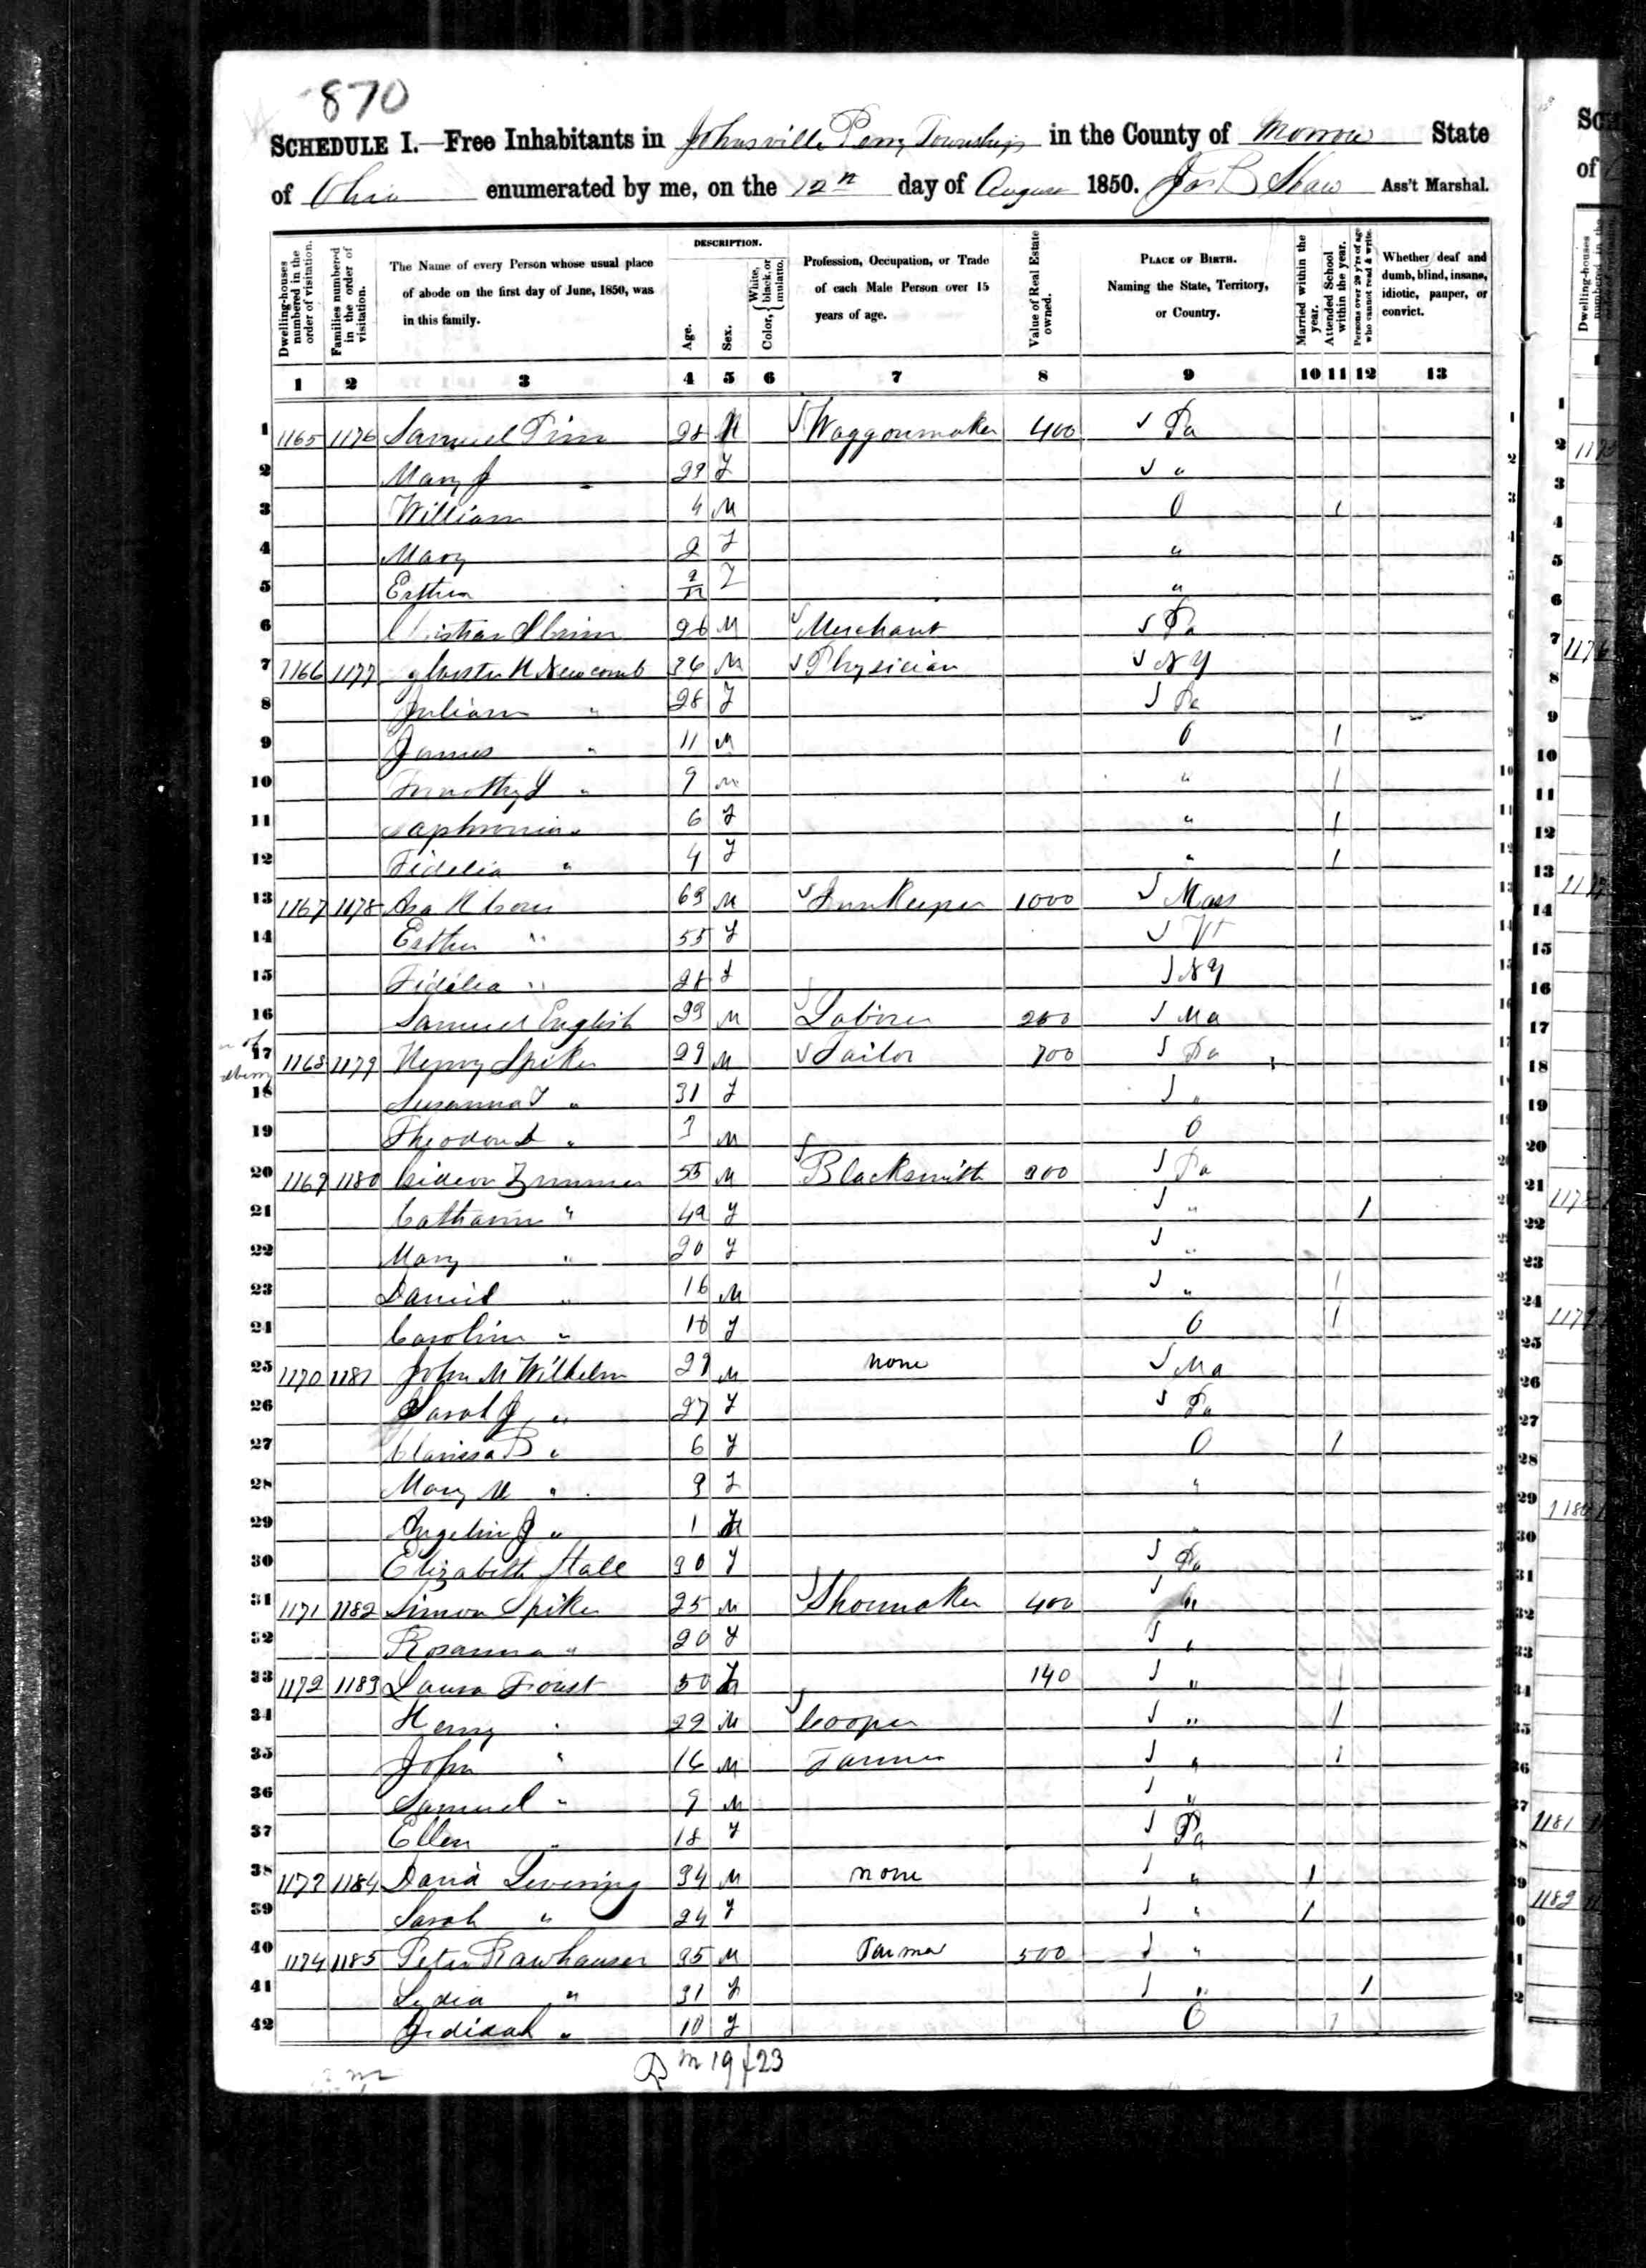 870
SCHEDULE I.—Free Inhabitants in Johnsville Perry Township in the County of Morrow State
of Ohio enumerated by me, on the 12th day of August 1850. Jas B Shaw Ass't Marshal.
Dwelling-houses numbered in the order of visitation.
Families numbered in the order of visitation.
The Name of every Person whose usual place of abode on the first day of June, 1850, was in this family.
DESCRIPTION.
Age.
Sex.
Color, { White, black, or mulatto.
Profession, Occupation, or Trade of each Male Person over 15 years of age.
Value of Real Estate owned.
PLACE OF BIRTH. Naming the State, Territory, or Country.
Married within the year.
Attended School within the year.
Persons over 20 y'rs of age who cannot read & write.
Whether deaf and dumb, blind, insane, idiotic, pauper, or convict.
1 2 3 4 5 6 7 8 9 10 11 12 13
1 1165 1176 Samuel 28 M Waggonmaker 400 Pa
2 Mary J F "
3 William 4 M O 1
4 Mary 2 F "
5 Esther F "
6 26 M Merchant Pa
7 1166 1177 Newcomb 36 M Physician N Y
8 Juliann " 28 F Pa
9 James " 11 M O 1
10 Timothy " 9 M " 1
11 Saphronia " 6 F " 1
12 Fidelia " 4 F " 1
13 1167 1178 Asa 63 M Innkeeper 1000 Mass
14 Esther " 55 F Vt
15 Fidelia " 28 F N Y
16 Samuel English M Laborer 200 Ma
17 1168 1179 Henry Spiker 29 M Tailor 700 Pa
18 Susanna " 31 F "
19 Theodore " 3 M O
20 1169 1180 Gideon 55 M Blacksmith 300 Pa
21 Catharine " 49 F " 1
22 Mary " 20 F "
23 Daniel " 16 M " 1
24 Caroline " 10 F O 1
25 1170 1181 John M Wilhelm 29 M none Ma
26 Sarah J " 27 F Pa
27 Clarissa B " 6 F O 1
28 Mary M " 3 F "
29 Angeline J " 1 F "
30 Elizabeth Stall 30 F Pa
31 1171 1182 Simon Spiker 25 M Shoemaker 400 "
32 Rosanna " 20 F "
33 1172 1183 Laura Foust 50 F 140 "
34 Henry " 22 M Cooper " 1
35 John " 16 M Farmer " 1
36 Samuel " 9 M "
37 Ellen " 18 F Pa
38 1173 1184 David Levering 34 M none " 1
39 Sarah " 24 F " 1
40 1174 1185 Peter Rawhauser 35 M Farmer 500 "
41 Lydia " 31 F " 1
42 " 10 F O 1
M 19 f 23